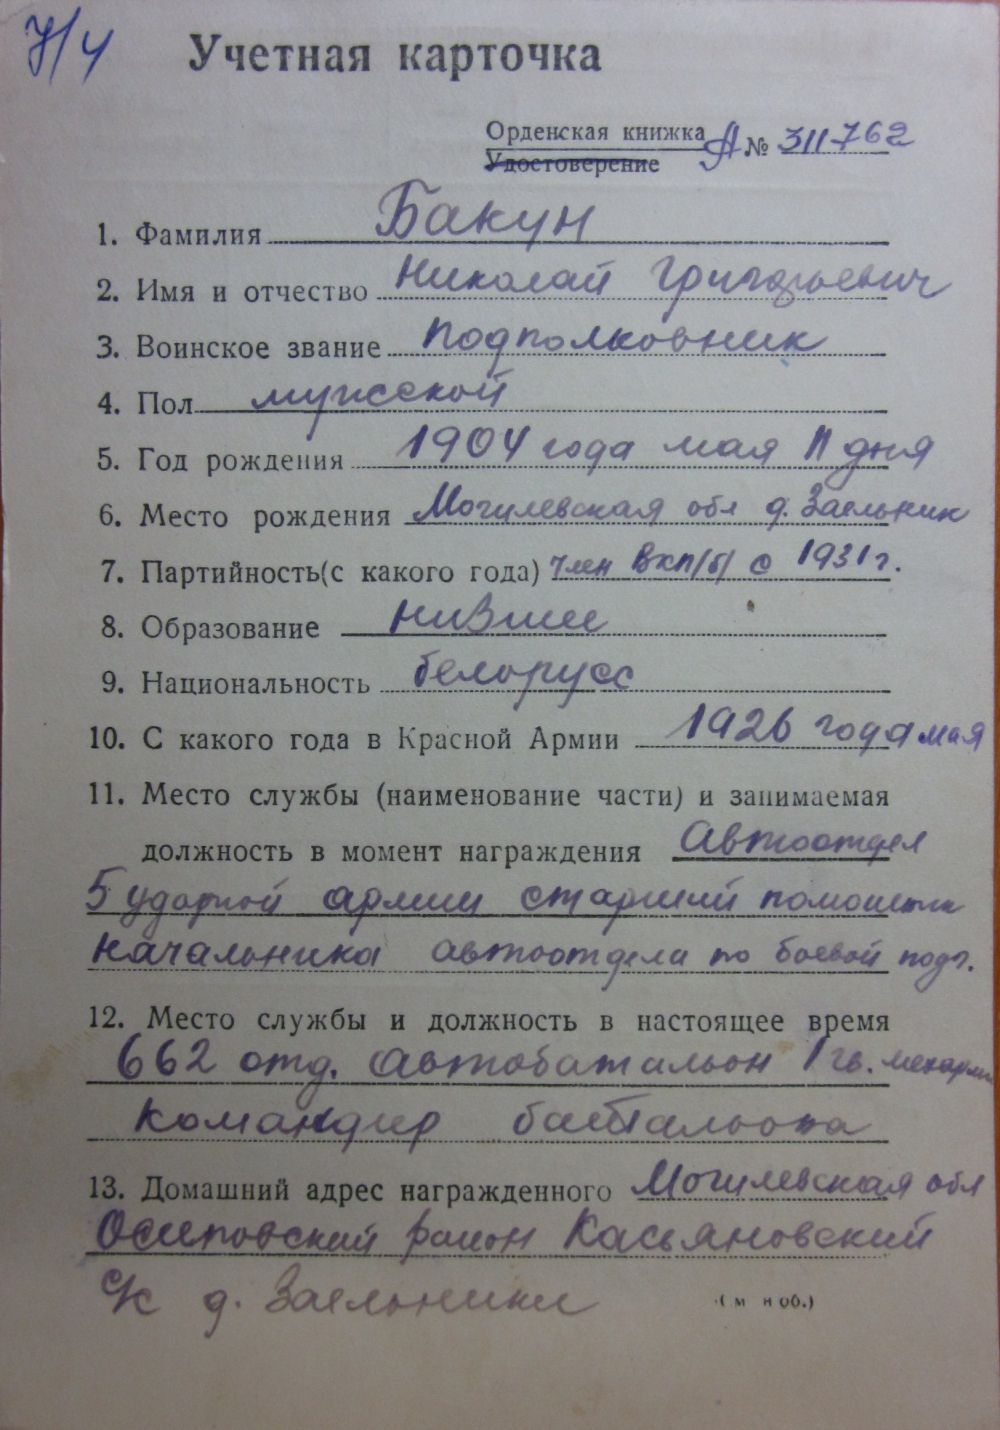 7/4
Учетная карточка
Орденская книжка
Удостоверение А № 311762
1. Фамилия Бакун
2. Имя и отчество Николай Григорьевич
3. Воинское звание подполковник
4. Пол мужской
5. Год рождения 1904 года мая 11 дня
6. Место рождения Могилевская обл д. Заельник
7. Партийность(с какого года) член ВКП/б/ с 1931 г.
8. Образование низшее
9. Национальность белорусс
10. С какого года в Красной Армии 1926 года мая
11. Место службы (наименование части) и занимаемая
должность в момент награждения Автоотдел
5 ударной армии старший помошник
начальника автоотдела по боевой подг.
12. Место службы и должность в настоящее время
662 отд. автобатальон 1 гв. мехарми
командир батальона
13. Домашний адрес награжденного Могилевская обл
Осиповский район Касьяновский
с/к д. Заельники